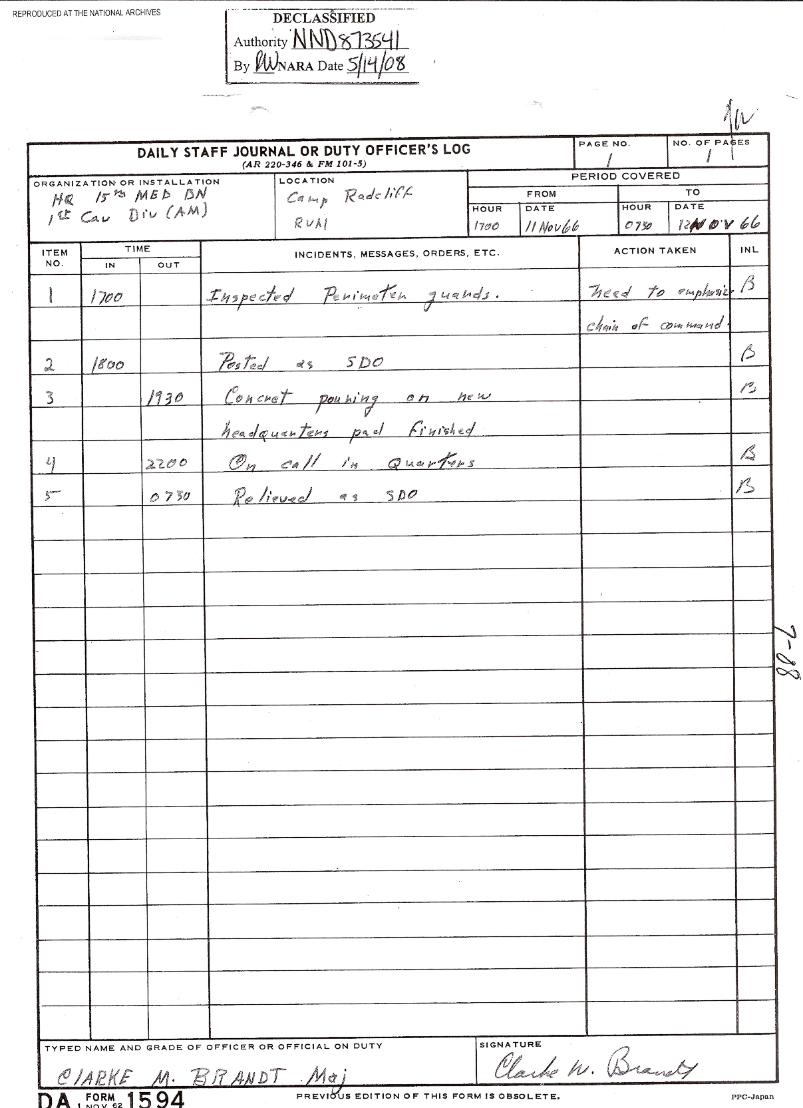 REPRODUCED AT THE NATIONAL ARCHIVES
DECLASSIFIED
Authority NND873541
By NARA Date 5/14/08
DAILY STAFF JOURNAL OR DUTY OFFICER'S LOG
(AR 220-346 & FM 101-5)
PAGE NO.
1
NO. OF PAGES
1
ORGANIZATION OR INSTALLATION
HQ 15th MED BN
1st Cav Div (AM)
LOCATION
Camp Radcliff
RVN
PERIOD COVERED
FROM
TO
HOUR
DATE
HOUR
DATE
1700
11 Nov 66
0730
12 NOV 66
ITEM NO.
TIME
IN
OUT
INCIDENTS, MESSAGES, ORDERS, ETC.
ACTION TAKEN
INL
1 1700 Inspected Perimeter guards. need to emphasize B
chain of command.
2 1800 Posted as SDO B
3 1930 Concret pouring on new B
headquarters pad finished
4 2200 On call in Quarters B
5 0730 Relieved as SDO B
7-88
TYPED NAME AND GRADE OF OFFICER OR OFFICIAL ON DUTY
CLARKE M. BRANDT Maj
SIGNATURE
Clarke M. Brandt
DA FORM 1 NOV 62 1594
PREVIOUS EDITION OF THIS FORM IS OBSOLETE.
PPC-Japan